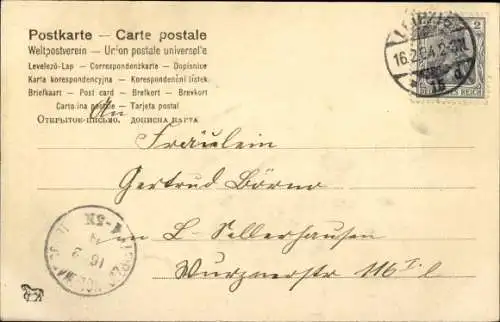 Postkarte – Carte postale
Weltpostverein – Union postale universelle
Levelező-Lap – Correspondenzkarte – Dopisnice
Karta korespondencyjna – Korespondenční lístek
Briefkaart – Post card – Brefkort – Brevkort
Cartolina postale – Tarjeta postal
Открытое письмо. дописна карта
LEIPZIG
16.2.04.2-3N.
2
DEUTSCHES REICH
An
Fräulein
Gertrud Börno
in L-Sellerhausen
Wurznerstr 116 I. l
4-5N
16 2